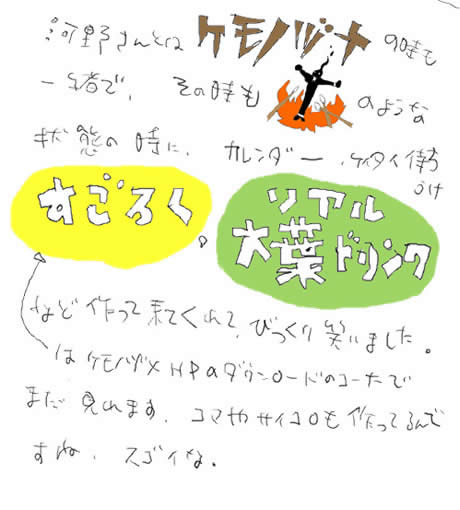 河野さんとは ケモノヅメ の時も
一緒で、その時も のような
状態の時に、カレンダー、ケイタイ待ち受け
すごろく、リアル大葉ドリンク
など作って来てくれて、びっくり笑いました。
はケモノヅメHPのダウンロードのコーナーで
まだ見れます。コマやサイコロも作ってるんで
すね。スゴイな。